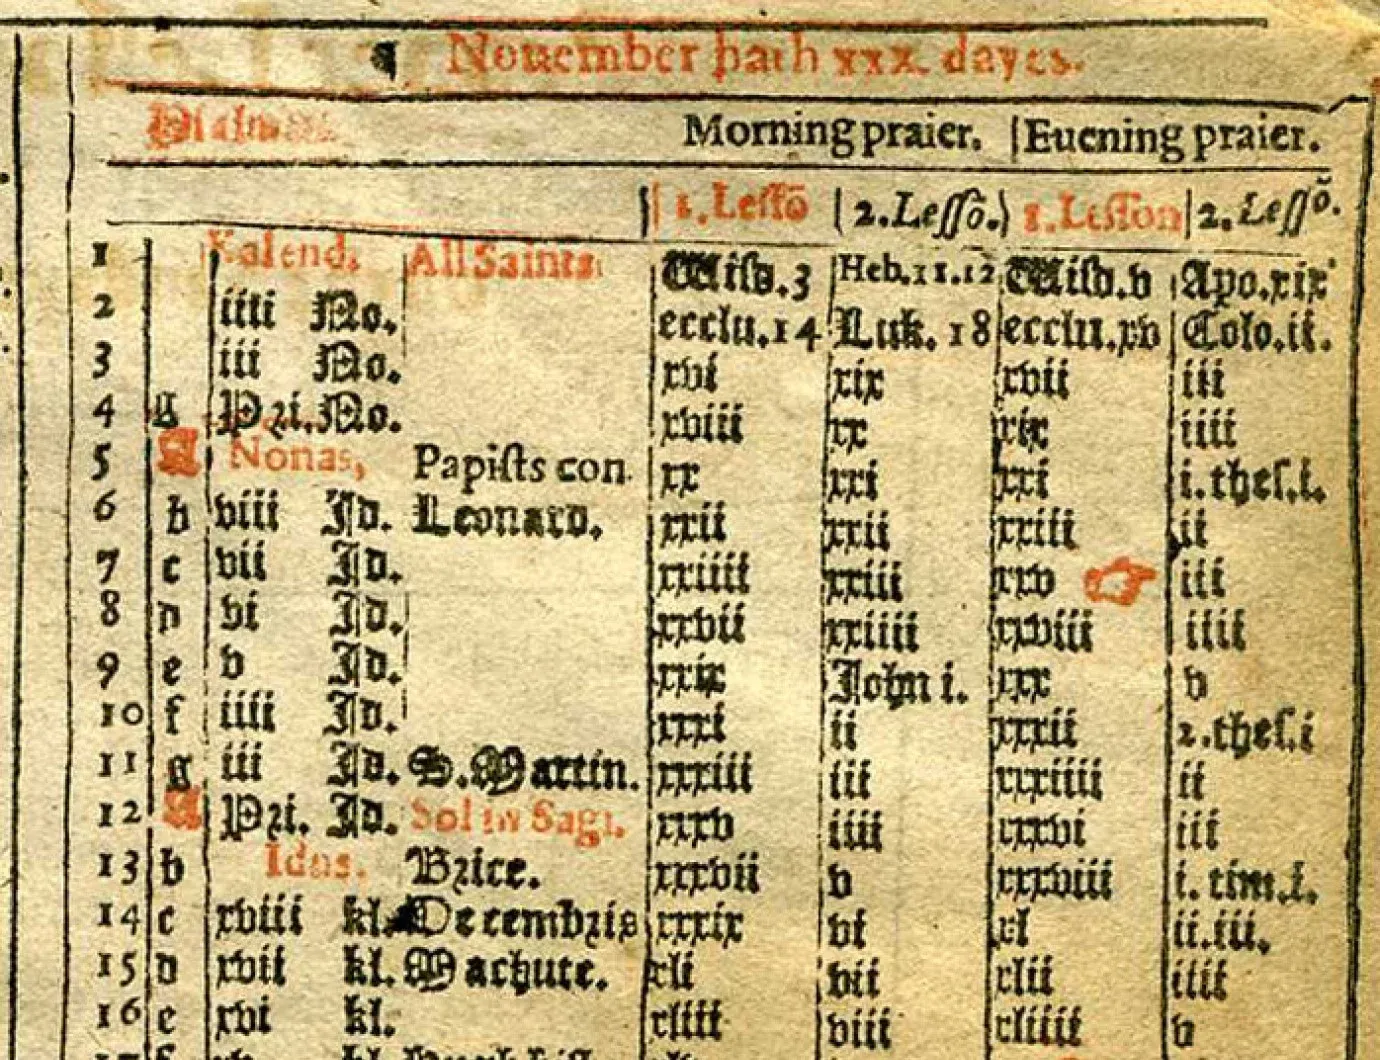 ¶ Nouember hath xxx. dayes.
Psalmes
Morning praier. Euening praier.
1.Lessō 2.Lessō. 1.Lesson 2.Lessō.
1 Kalend. All Saints. Wisd.3 Heb.11.12 Wisd.v Apo.xix
2 iiii No. ecclu.14 Luk. 18 ecclu.xv Colo.ii.
3 iii No. xvi xix xvii iii
4 g Pri. No. xviii xx xix iiii
5 A Nonas, Papists con. xx xxi xxi i.thes.i.
6 b viii Id. Leonard. xxii xxii xxiii ii
7 c vii Id. xxiiii xxiii xxv ☞ iii
8 d vi Id. xxvii xxiiii xxviii iiii
9 e v Id. xxix John i. xxx v
10 f iiii Id. xxxi ii xxxii 2.thes.i
11 g iii Id. S.Martin. xxxiii iii xxxiiii ii
12 A Pri. Id. Sol in Sagi. xxxv iiii xxxvi iii
13 b Idus. Brice. xxxvii v xxxviii i. tim.i.
14 c xviii kl. Decembris xxxix vi xl ii.iii.
15 d xvii kl. Machute. xli vii xlii iiii
16 e xvi kl. xliii viii xliiii v